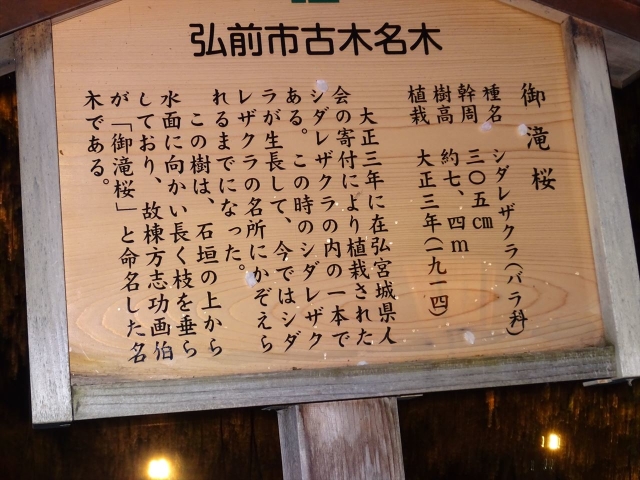 弘前市古木名木
御滝桜
種名 シダレザクラ(バラ科)
幹周 三〇五㎝
樹高 約七、四m
植栽 大正三年(一九一四)
大正三年に在弘宮城県人
会の寄付により植栽された
シダレザクラの内の一本で
ある。この時のシダレザク
ラが生長して、今ではシダ
レザクラの名所にかぞえら
れるまでになった。
この樹は、石垣の上から
水面に向かい長く枝を垂ら
しており、故棟方志功画伯
が「御滝桜」と命名した名
木である。